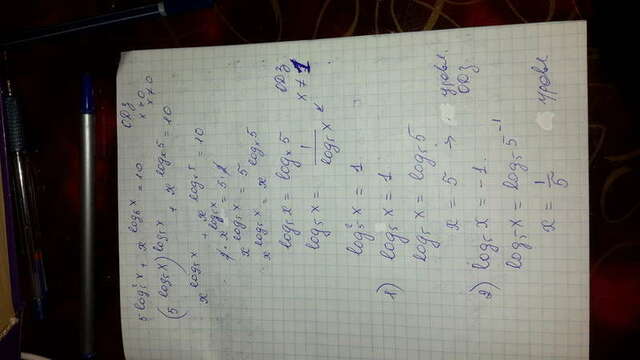 5^{log₅² x} + x^{log₅ x} = 10
ОДЗ
x > 0
x ≠ 0
(5^{log₅ x})^{log₅ x} + x^{logₓ 5} = 10
x^{log₅ x} + x^{logₓ 5} = 10
x^{log₅ x} = 5
x^{log₅ x} = 5
x^{log₅ x} = x^{logₓ 5}
log₅ x = logₓ 5
ОДЗ
log₅ x = 1/log₅ x
x ≠ 1
log₅² x = 1
1) log₅ x = 1
log₅ x = log₅ 5
x = 5 → удовл. ОДЗ
2) log₅ x = -1
log₅ x = log₅ 5⁻¹
x = 1/5 удовл